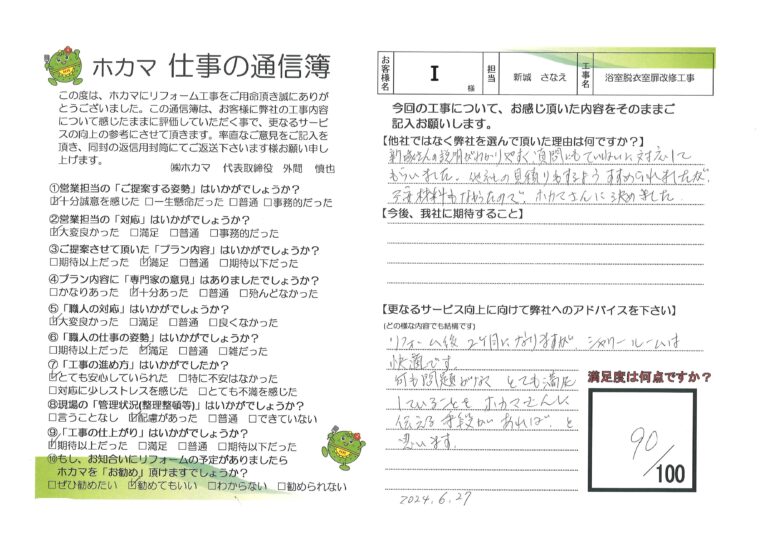 ホカマ 仕事の通信簿
この度は、ホカマにリフォーム工事をご用命頂き誠にありが
とうございました。この通信簿は、お客様に弊社の工事内容
について感じたままに評価していただく事で、更なるサービ
スの向上の参考にさせて頂きます。率直なご意見をご記入を
頂き、同封の返信用封筒にてご返送下さいます様お願い申し
上げます。
㈱ホカマ 代表取締役 外間 慎也
①営業担当の「ご提案する姿勢」はいかがでしょうか?
☑十分誠意を感じた □一生懸命だった □普通 □事務的だった
②営業担当の「対応」はいかがでしょうか?
☑大変良かった □満足 □普通 □事務的だった
③ご提案させて頂いた「プラン内容」はいかがでしょうか?
□期待以上だった ☑満足 □普通 □期待以下だった
④プラン内容に「専門家の意見」はありましたでしょうか?
□かなりあった ☑十分あった □普通 □殆んどなかった
⑤「職人の対応」はいかがでしょうか?
☑大変良かった □満足 □普通 □良くなかった
⑥「職人の仕事の姿勢」はいかがでしょうか?
□期待以上だった ☑満足 □普通 □雑だった
⑦「工事の進め方」はいかがでしたか?
☑とても安心していられた □特に不安はなかった
□対応に少しストレスを感じた □とても不満を感じた
⑧現場の「管理状況(整理整頓等)」はいかがでしょうか?
□言うことなし ☑配慮があった □普通 □できていない
⑨「工事の仕上がり」はいかがでしょうか?
☑期待以上だった □満足 □普通 □期待以下だった
⑩もし、お知合いにリフォームの予定がありましたら
ホカマを「お勧め」頂けますでしょうか?
□ぜひ勧めたい ☑勧めてもいい □わからない □勧められない
お客様名 I 様 担当 新城 さなえ 工事名 浴室脱衣室扉改修工事
今回の工事について、お感じ頂いた内容をそのままご
記入お願いします。
【他社ではなく弊社を選んで頂いた理由は何ですか?】
新城さんの説明がわかりやすく質問にもていねいに対応して
もらいました。他社の見積りもするようすすめられましたが、
不安材料もなかったので、ホカマさんに決めました。
【今後、我社に期待すること】
【更なるサービス向上に向けて弊社へのアドバイスを下さい】
(どの様な内容でも結構です)
リフォーム後2ヶ月になりますが、シャワールームは
快適です。
何も問題がなく とても満足
していることを ホカマさんに
伝える手段があれば、と
思います。
満足度は何点ですか?
90/100
2024.6.27